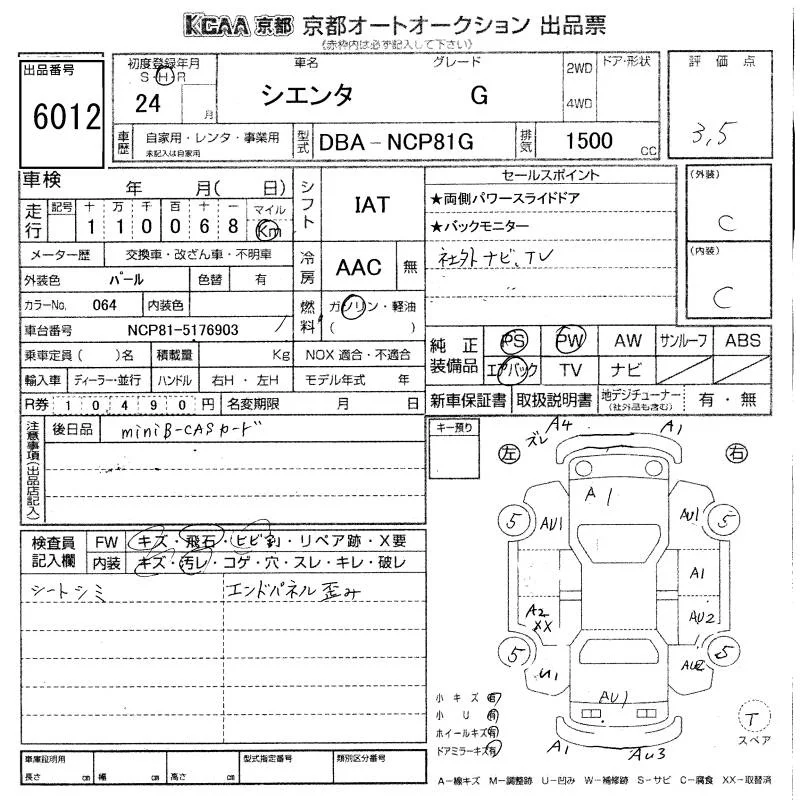 KCAA 京都 京都オートオークション 出品票
(赤枠内は必ず記入して下さい)
出品番号
6012
初度登録年月
S H R
24 月
車名
シエンタ
グレード
G
2WD
4WD
ドア・形状
評価点
3,5
車歴
自家用・レンタ・事業用
未記入は自家用
型式
DBA-NCP81G
排気
1500 CC
車検 年 月( 日)
走行
記号 十 万 千 百 十 一 マイル
1 1 0 0 6 8 Km
シフト
IAT
セールスポイント
★両側パワースライドドア
★バックモニター
社外ナビ、TV
(外装)
C
(内装)
C
メーター歴 交換車・改ざん車・不明車
冷房
AAC 無
外装色 パール 色替 有
カラーNo. 064 内装色
燃料
ガソリン・軽油
( )
車台番号 NCP81-5176903
純正装備品
PS PW AW サンルーフ ABS
エアバック TV ナビ
乗車定員 ( )名 積載量 Kg NOX 適合・不適合
輸入車 ディーラー・並行 ハンドル 右H・左H モデル年式 年
新車保証書 取扱説明書 地デジチューナー (社外品も含む) 有・無
R券 10490円 名変期限 月 日
注意事項(出品店記入)
後日品 miniB-CASカード
キー預り
左
右
A4
ズレ
A1
A1
5
AU1
AU1
5
A1
A2
XX
AU2
5
U1
AU2
5
AU1
A1
AU3
検査員記入欄
FW キズ・飛石・ヒビ割・リペア跡・X要
内装 キズ・汚レ・コゲ・穴・スレ・キレ・破レ
シートシミ
エンドパネル歪み
小キズ 有
小U 有
ホイールキズ 有
ドアミラーキズ 有
T
スペア
車庫証明用
長さ cm 幅 cm 高さ cm
型式指定番号
類別区分番号
A-線キズ M-調整跡 U-凹み W-補修跡 S-サビ C-腐食 XX-取替済